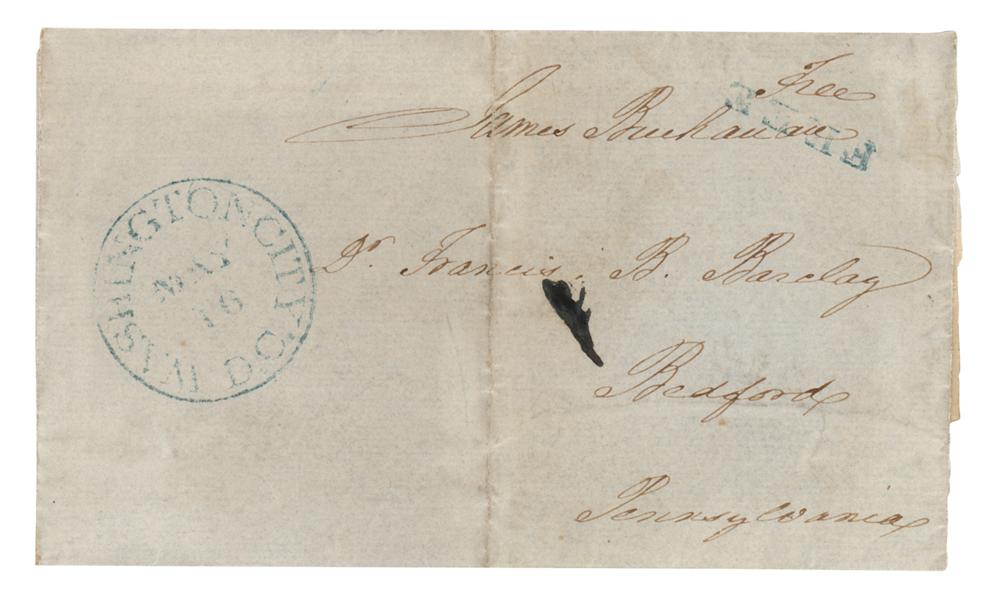 Free
James Buchanan
FREE
WASHINGTON CITY. D.C.
MAY
16
Dr. Francis. B. Barclay
Bedford
Pennsylvania